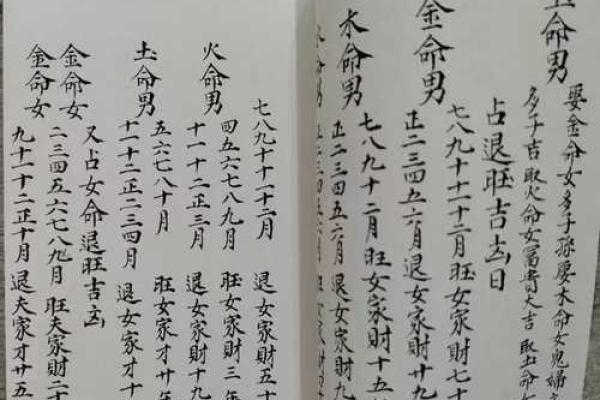 命男
娶金命女多子孫娶木命女鬼婦
多子吉取火命女富貴大吉 取土命女
占退旺吉凶日
金命男
七八九十一十二月旺女家財七十
正二三四五六月退女家財九
木命男
七八九十二月旺女家財十五
正二三四五六月退女家財四十
命男
七八九十十一十二月 退女家財五十
火命男
四五六七八九月 旺女家財三年
十一十二正三月 退女家財十九
土命男
五六七八十月 旺女家才卅年
十一十二正二三四月 退女家才十
又占女命退旺吉凶
金命女
二三四五六七八九月 旺夫家財二十
金命女
九十一十二正十月 退夫家才廿五